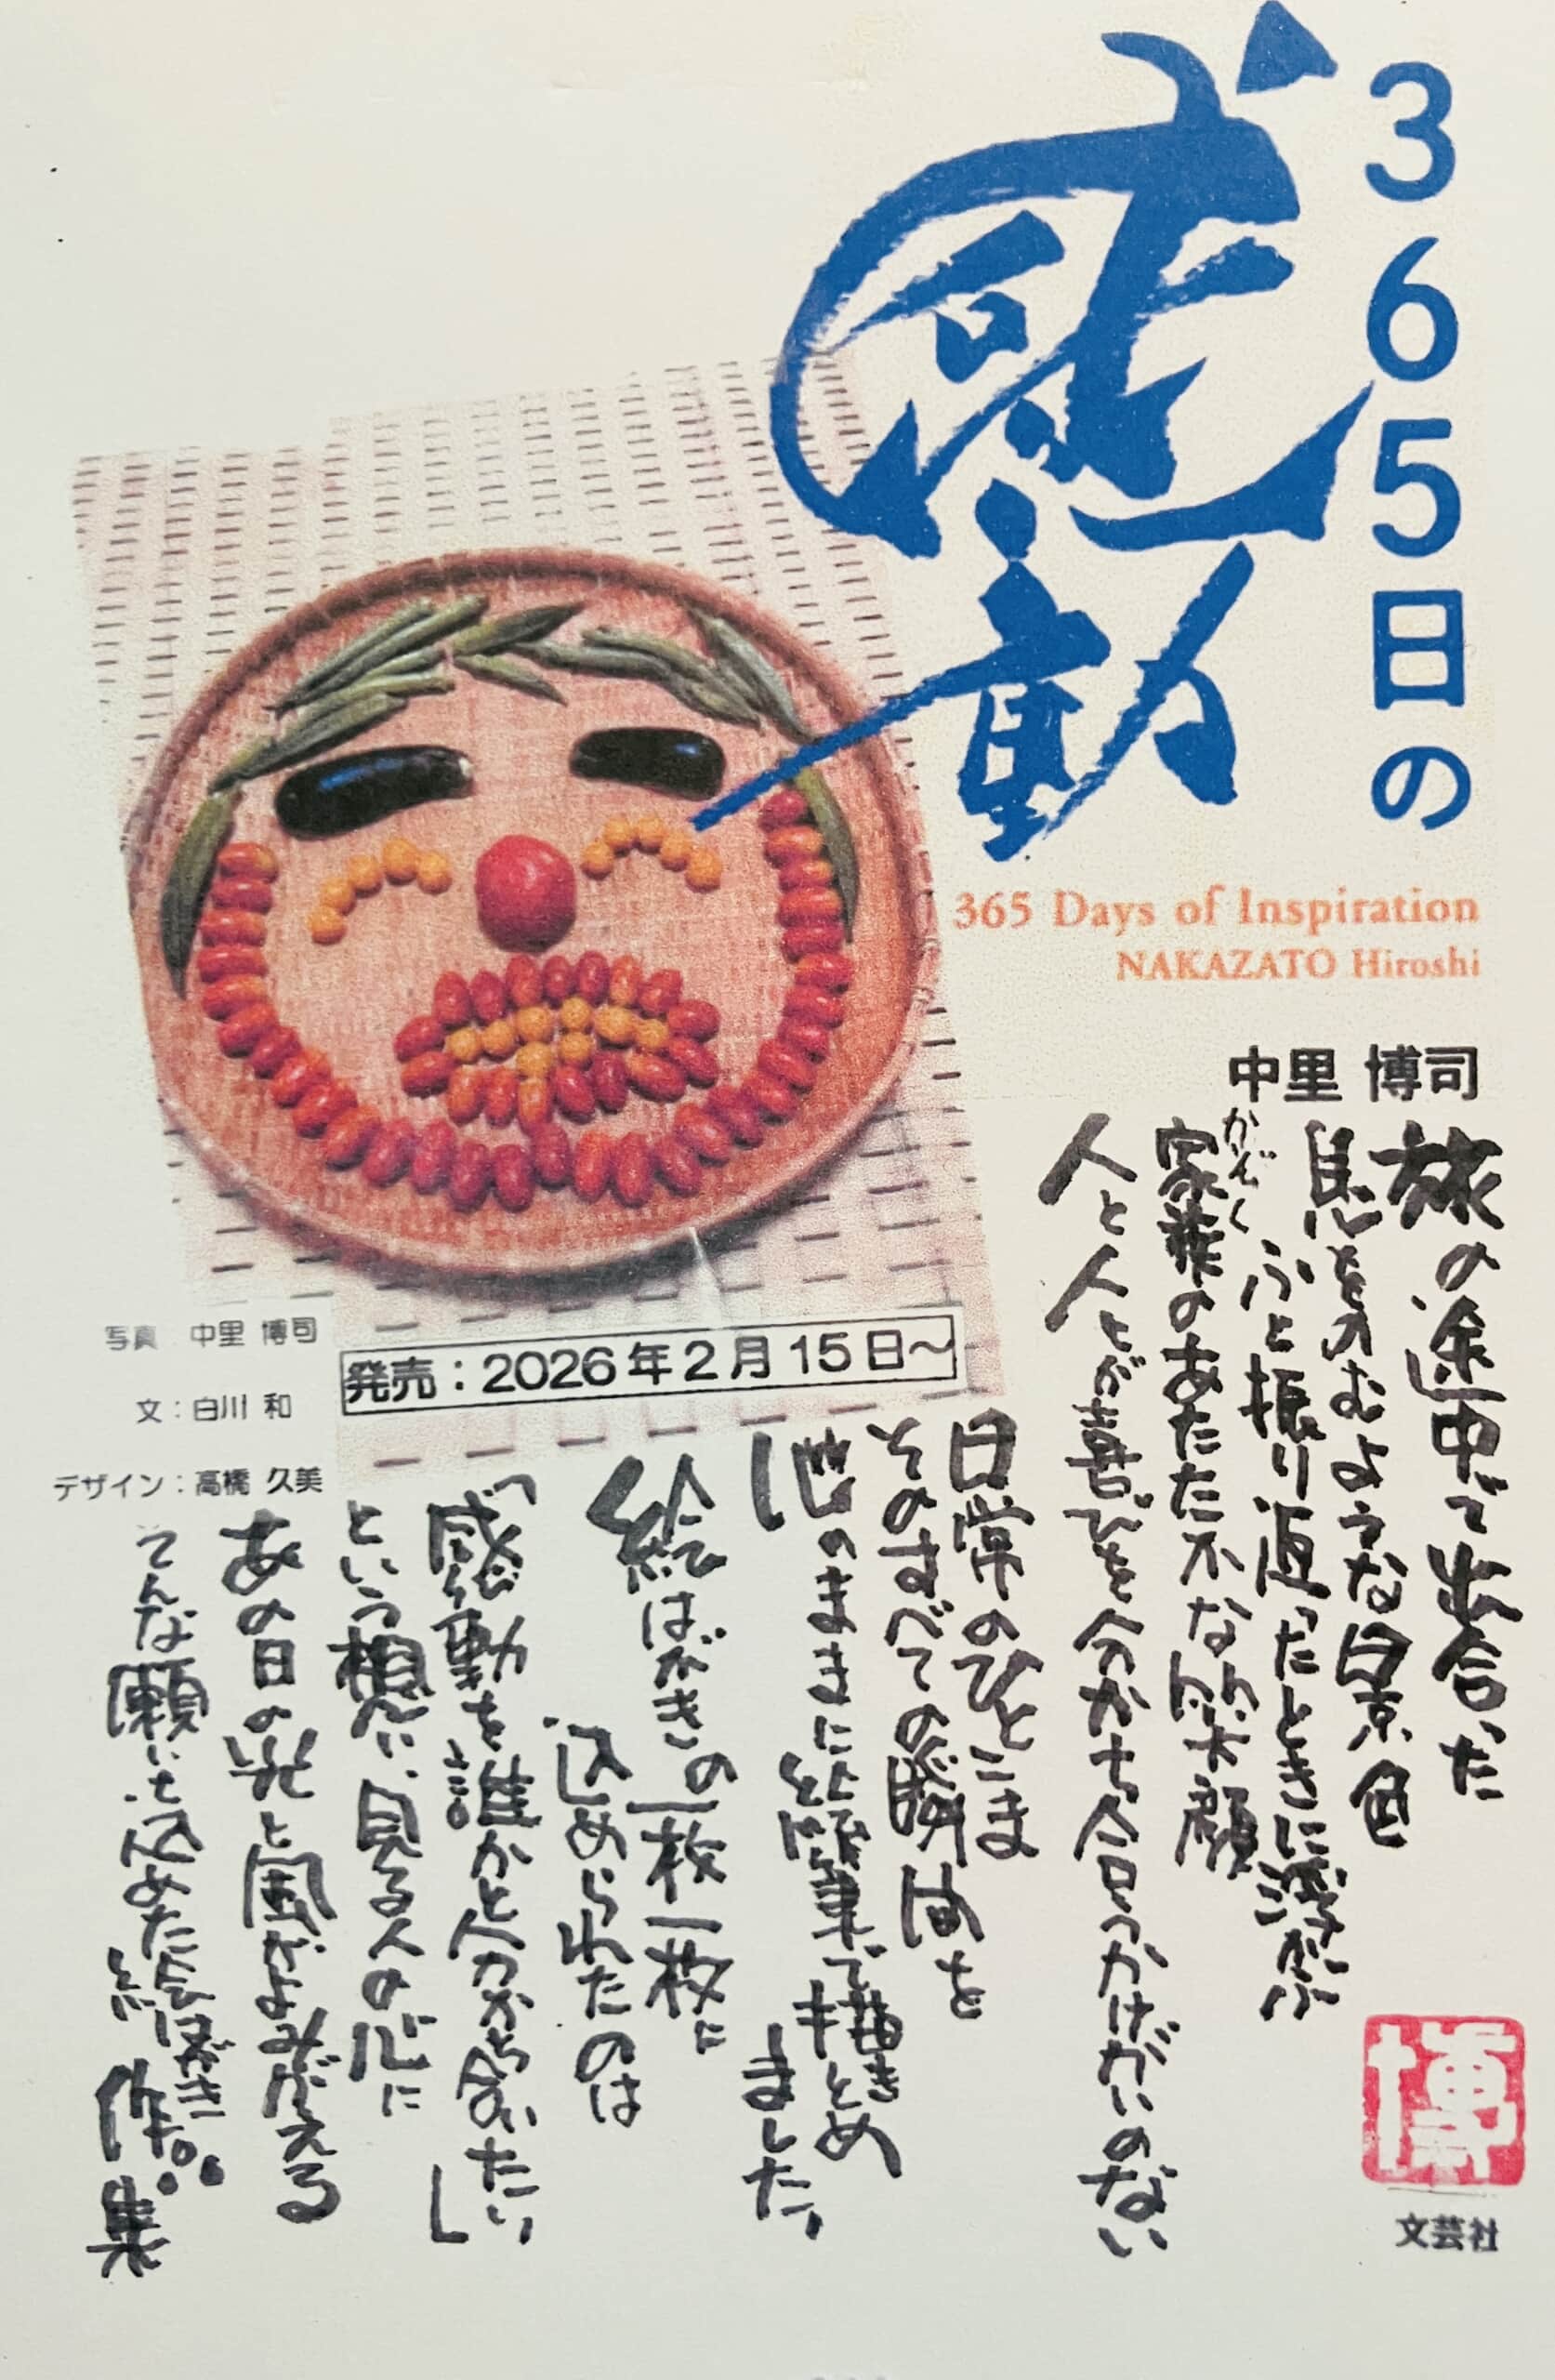 365日の
感動
365 Days of Inspiration
NAKAZATO Hiroshi
中里 博司
旅の途中で出合った
息をのむような景色
ふと振り返ったときに浮かぶ
かぞく
家族のあたたかな笑顔
人と人とが喜びを分かち合うかけがいのない
日常のひとこま
そのすべての瞬間を
心のままに絵筆で描きとめ
ました。
絵はがきの一枚一枚に
込められたのは
「感動を誰かと分かち合いたい」
という想いに、見る人の心に
あの日の光と風がよみがえる
そんな願いを込めた絵はがき作品集
写真 中里 博司
文：白川 和
デザイン：高橋 久美
発売：2026年2月15日～
博
文芸社